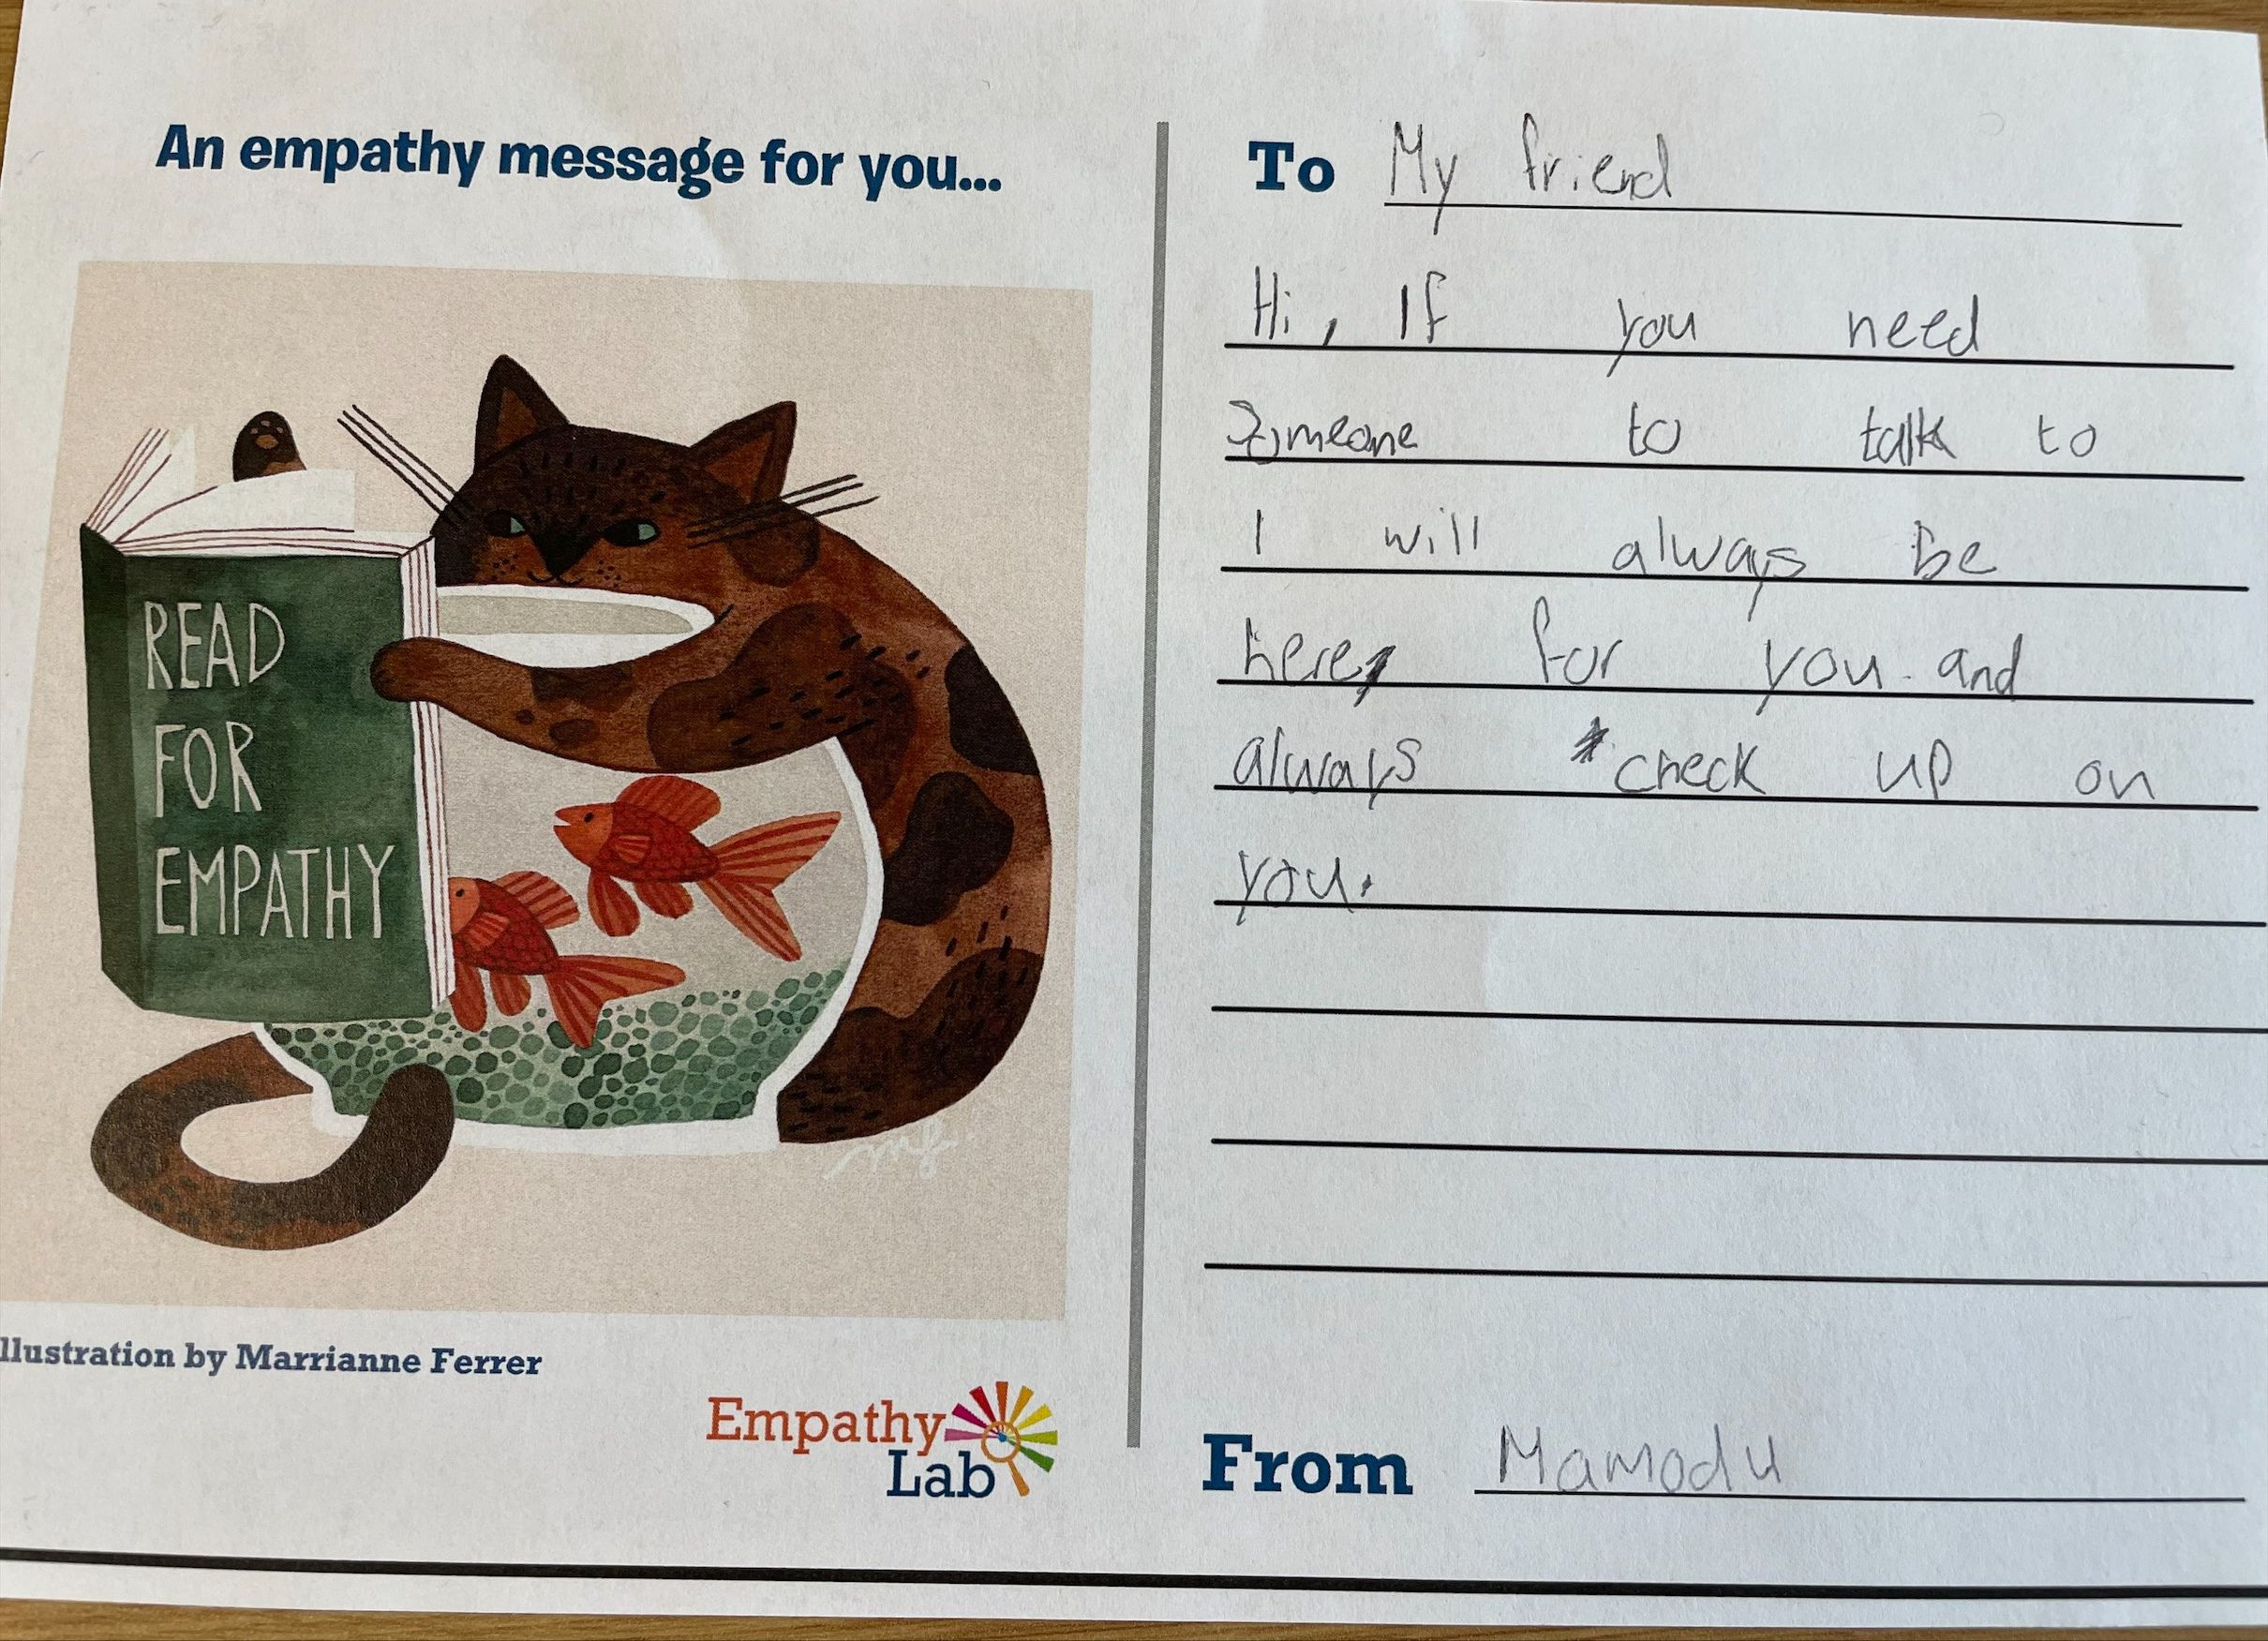 An empathy message for you...
READ
FOR
EMPATHY
llustration by Marrianne Ferrer
Empathy
Lab
To My friend
Hi, If you need
Someone to talk to
I will always be
here, for you. and
always check up on
you.
From Mamodu